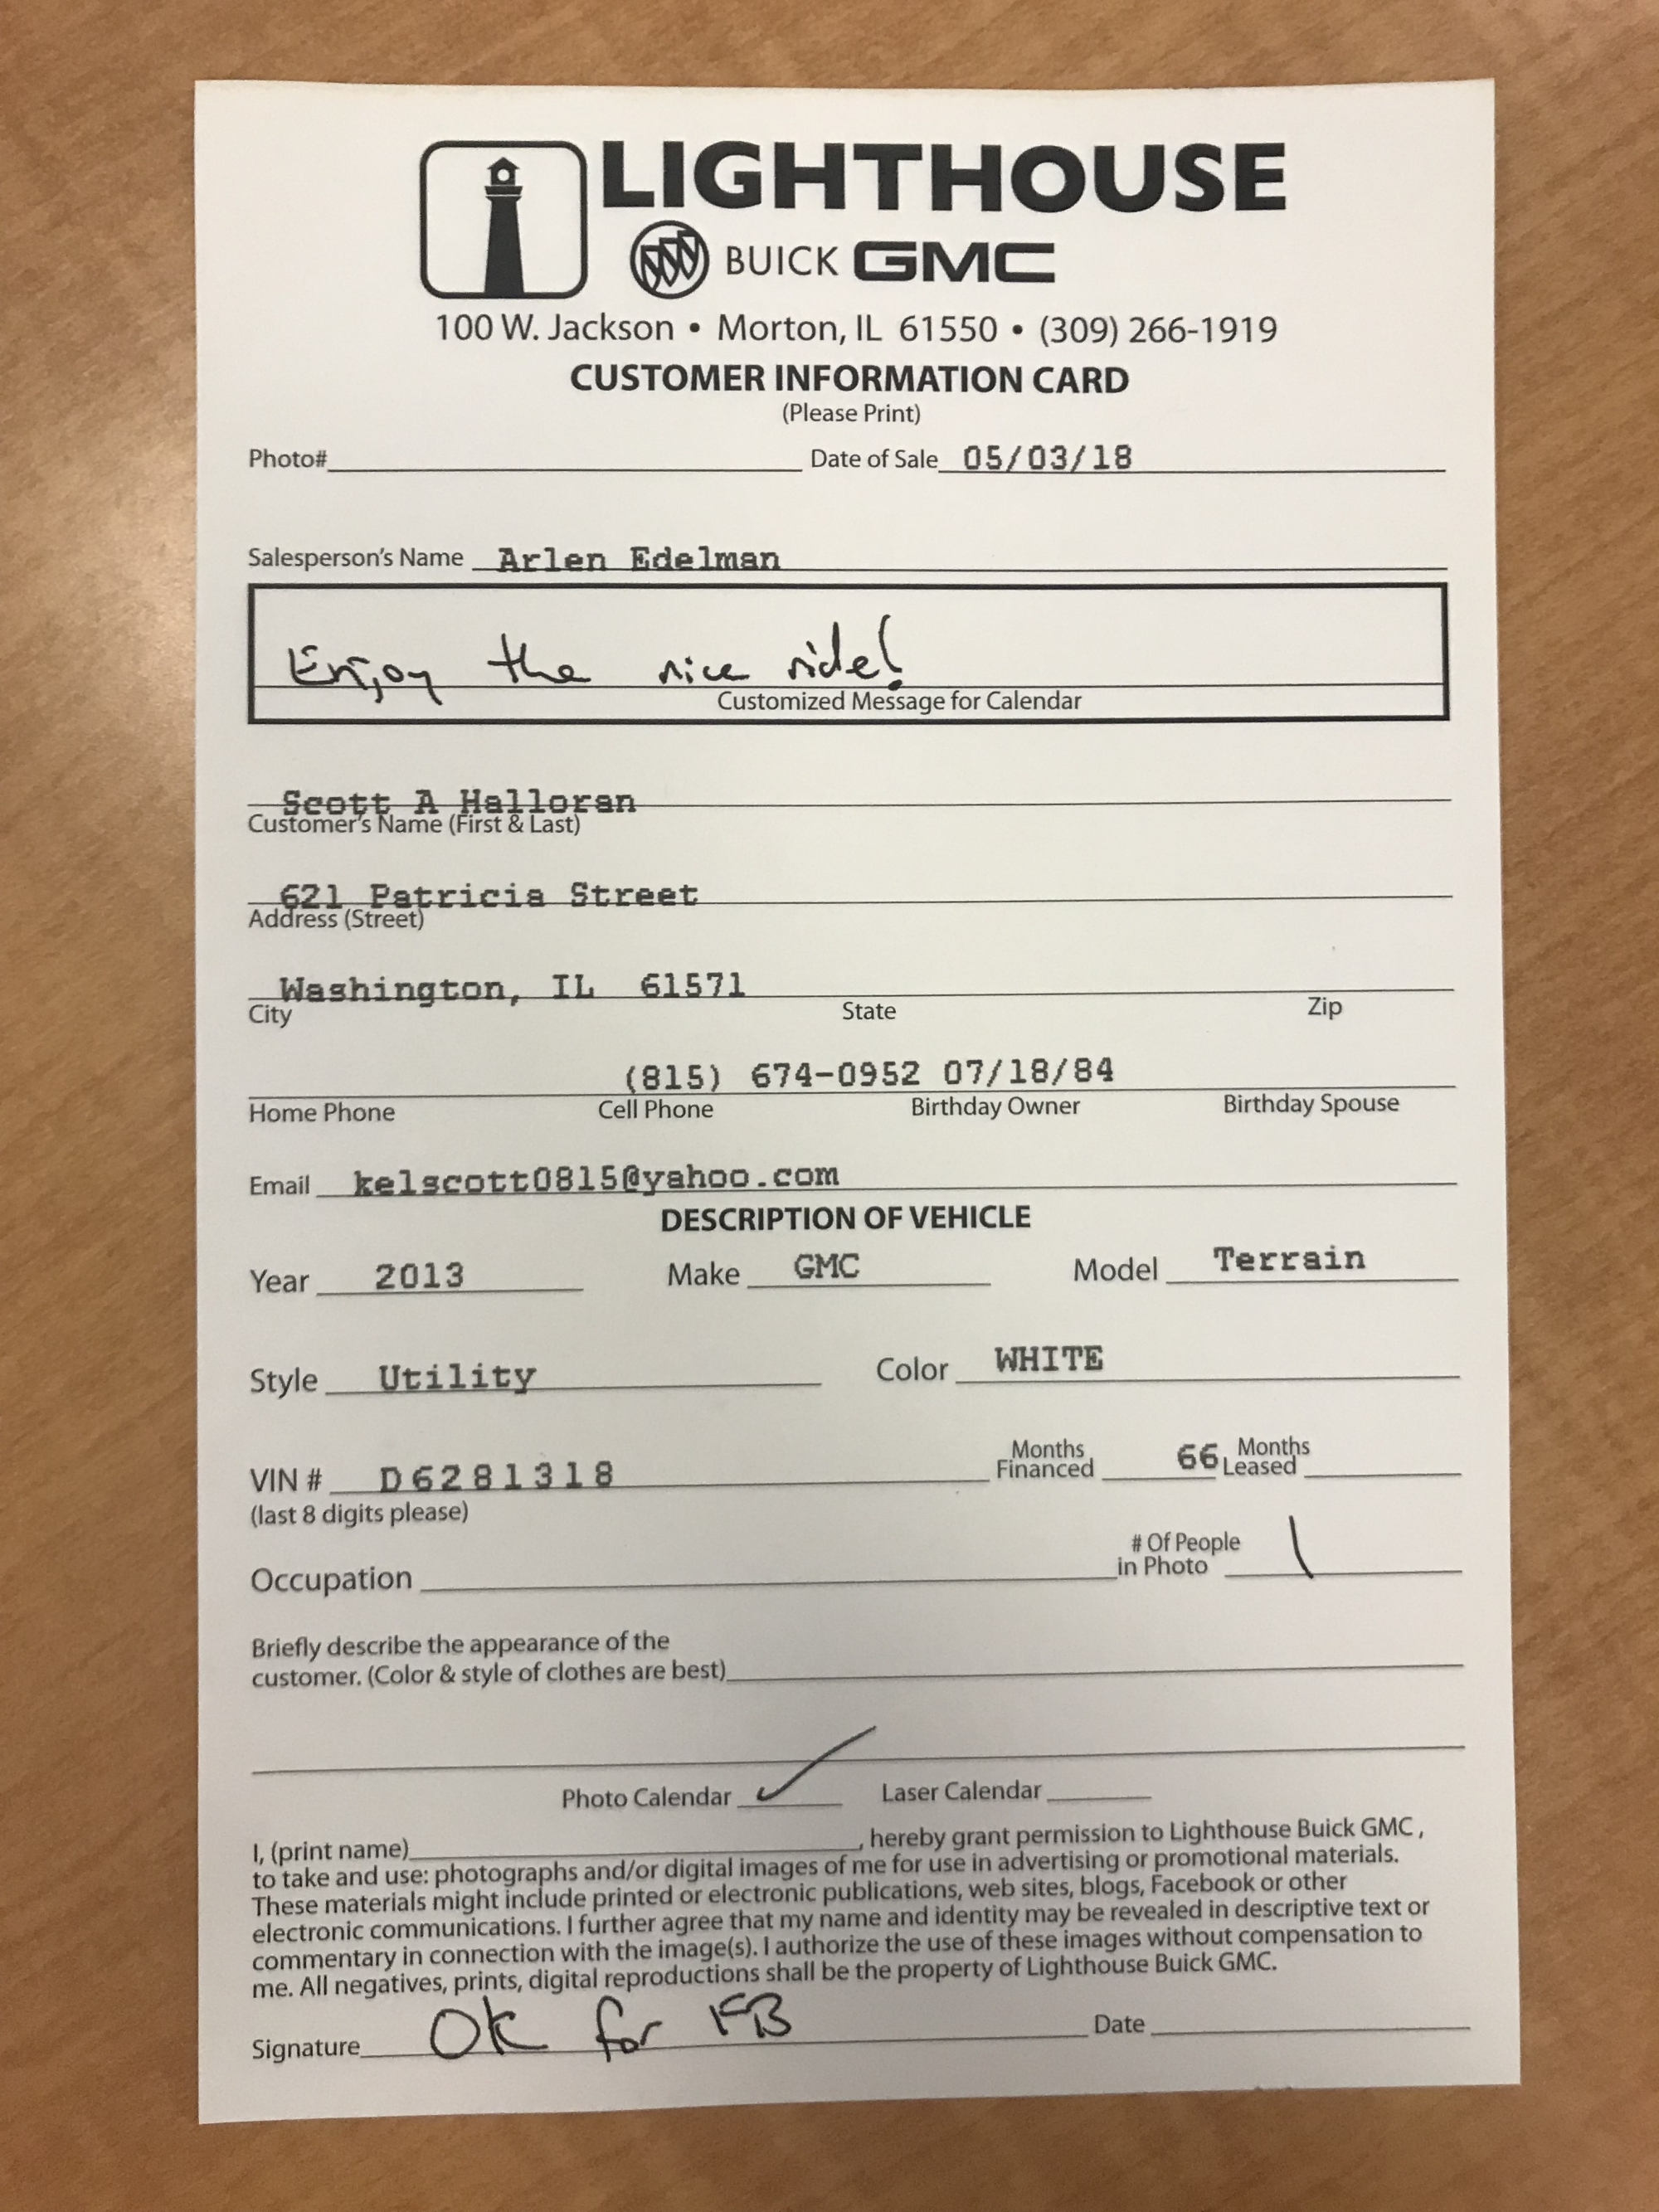 LIGHTHOUSE
BUICK GMC
100 W. Jackson • Morton, IL 61550 • (309) 266-1919
CUSTOMER INFORMATION CARD
(Please Print)
Photo# Date of Sale 05/03/18
Salesperson's Name Arlen Edelman
Enjoy the nice ride!
Customized Message for Calendar
Scott A Halloran
Customer's Name (First & Last)
621 Patricia Street
Address (Street)
Washington, IL 61571
City State Zip
(815) 674-0952 07/18/84
Home Phone Cell Phone Birthday Owner Birthday Spouse
Email kelscott0815@yahoo.com
DESCRIPTION OF VEHICLE
Year 2013 Make GMC Model Terrain
Style Utility Color WHITE
VIN # D6281318 Months Financed 66 Months Leased
(last 8 digits please)
Occupation # Of People in Photo 1
Briefly describe the appearance of the
customer. (Color & style of clothes are best)
Photo Calendar ✓ Laser Calendar
I, (print name) , hereby grant permission to Lighthouse Buick GMC ,
to take and use: photographs and/or digital images of me for use in advertising or promotional materials.
These materials might include printed or electronic publications, web sites, blogs, Facebook or other
electronic communications. I further agree that my name and identity may be revealed in descriptive text or
commentary in connection with the image(s). I authorize the use of these images without compensation to
me. All negatives, prints, digital reproductions shall be the property of Lighthouse Buick GMC.
Signature OK for FB Date